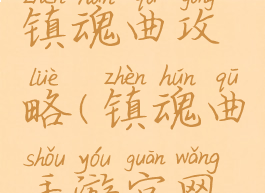 zhèn hún qǔ gōng
镇魂曲攻
lüè zhèn hún qū
略(镇魂曲
shǒu yóu guān wǎng
手游官网